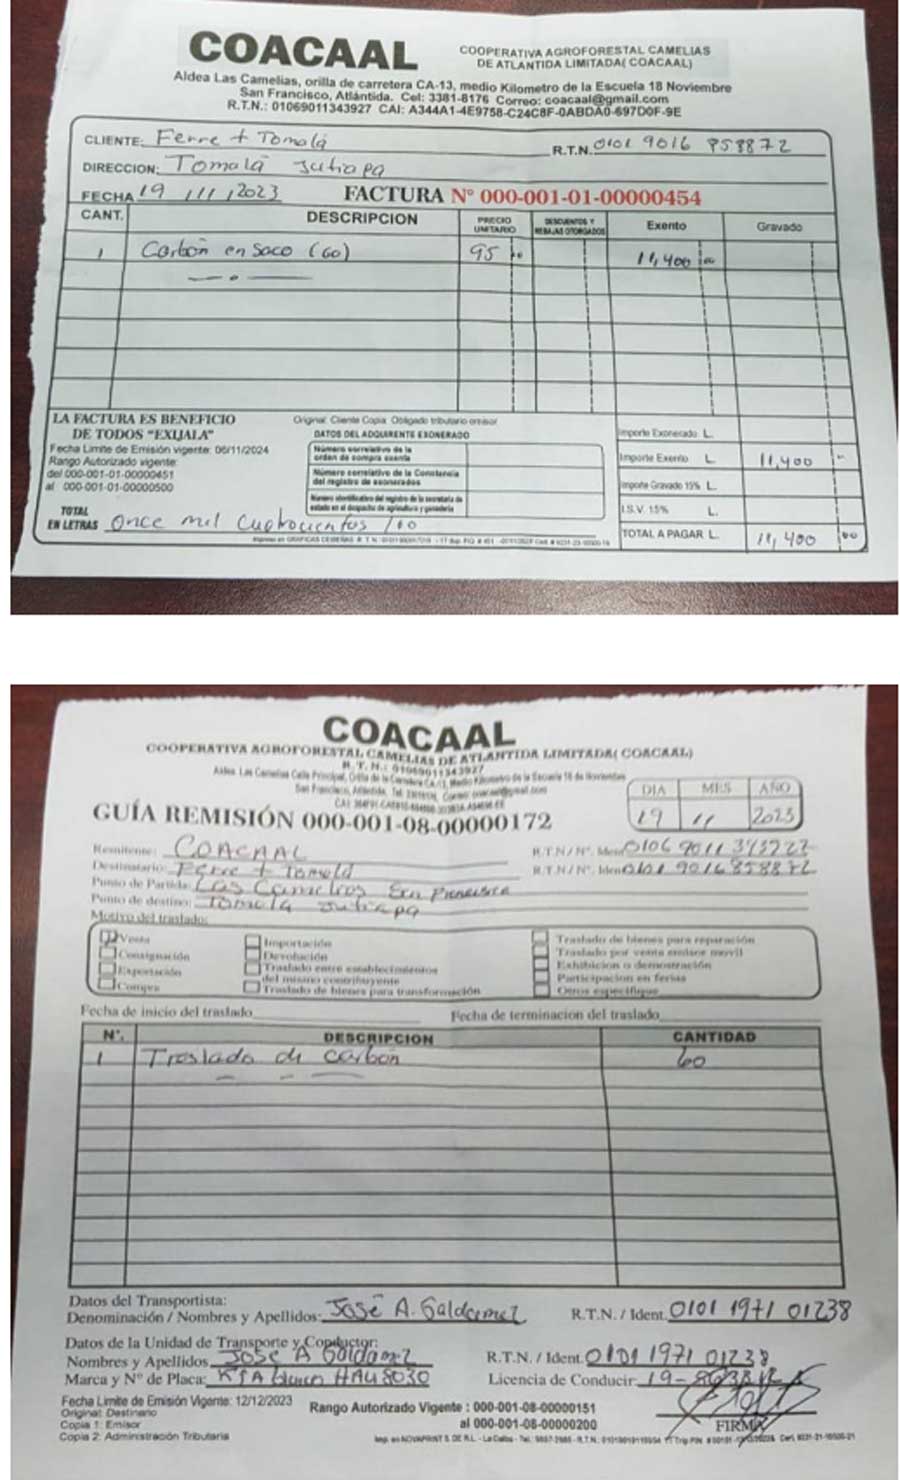 COACAAL
COOPERATIVA AGROFORESTAL CAMELIAS
DE ATLANTIDA LIMITADA( COACAAL)
Aldea Las Camelias, orilla de carretera CA-13, medio Kilometro de la Escuela 18 Noviembre
San Francisco, Atlántida. Cel: 3381-8176 Correo: coacaal@gmail.com
R.T.N.: 01069011343927 CAI: A344A1-4E9758-C24C8F-0ABDA0-697D0F-9E
CLIENTE: Ferre + Tomalá R.T.N. 0101 9016 858872
DIRECCION: Tomalá Jutiapa
FECHA 19 /11/ 2023 FACTURA N° 000-001-01-00000454
CANT. DESCRIPCION PRECIO UNITARIO DESCUENTOS Y REBAJAS OTORGADOS Exento Gravado
1 Carbón en saco (60) 95 00 11,400 00
LA FACTURA ES BENEFICIO
DE TODOS "EXIJALA"
Fecha Limite de Emisión vigente: 06/11/2024
Rango Autorizado vigente:
del 000-001-01-00000451
al 000-001-01-00000500
Original: Cliente Copia: Obligado tributario emisor
DATOS DEL ADQUIRENTE EXONERADO
Número correlativo de la
orden de compra exenta
Número correlativo de la Constancia
del registro de exonerados
Número identificativo del registro de la secretaria de
estado en el despacho de agricultura y ganaderia
Importe Exonerado L.
Importe Exento L. 11,400
Importe Gravado 15% L.
I.S.V. 15% L.
TOTAL A PAGAR L. 11,400 00
TOTAL
EN LETRAS Once mil cuatrocientos /00
COACAAL
COOPERATIVA AGROFORESTAL CAMELIAS DE ATLANTIDA LIMITADA( COACAAL)
R. T. N.: 01069011343927
Aldea Las Camelias Calle Principal, Orilla de la Carretera CA-13, Medio Kilometro de la Escuela 18 de Noviembre
San Francisco, Atlántida, Correo: coacaal@gmail.com
GUÍA REMISIÓN 000-001-08-00000172
DIA MES AÑO
19 11 2023
Remitente: COACAAL R.T.N/ N°. Iden 0106 9011 343927
Destinatario: Ferre + Tomalá R.T.N/ N°. Iden 0101 9016 858872
Punto de Partida: Las Camelias San Francisco
Punto de destino: Tomalá Jutiapa
Motivo del traslado:
Venta
Consignación
Exportación
Compra
Importación
Devolución
Traslado entre establecimientos
del mismo contribuyente
Traslado de bienes para transformación
Traslado de bienes para reparación
Traslado por venta emisor movil
Exhibicion o demostración
Participacion en ferias
Otros especifique
Fecha de inicio del traslado Fecha de terminacion del traslado
N°. DESCRIPCION CANTIDAD
1 Traslado de carbón 60
Datos del Transportista:
Denominación / Nombres y Apellidos: José A. Galdamez R.T.N. / Ident. 0101 1971 01238
Datos de la Unidad de Transporte y Conductor:
Nombres y Apellidos José A Galdamez R.T.N. / Ident. 0101 1971 01238
Marca y N° de Placa: KIA blanco HAU8030 Licencia de Conducir:
Fecha Limite de Emisión Vigente: 12/12/2023
Original: Destinario
Copia 1: Emisor
Copia 2: Administración Tributaria
Rango Autorizado Vigente : 000-001-08-00000151
al 000-001-08-00000200
FIRMA